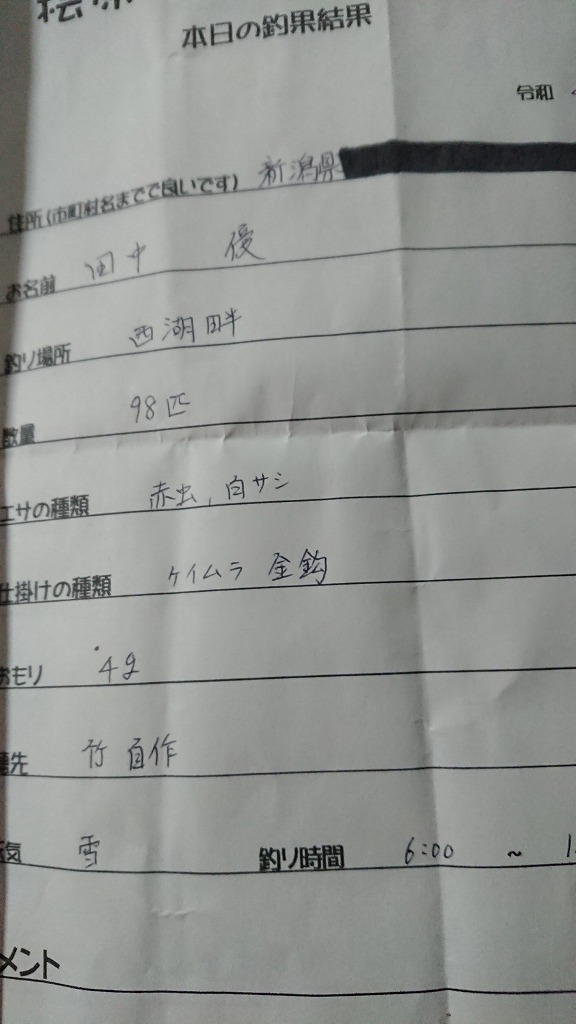 本日の釣果結果
令和
住所(市町村名までで良いです) 新潟県
お名前 田中 優
釣り場所 西湖畔
数量 98匹
エサの種類 赤虫, 白サシ
仕掛けの種類 ケイムラ 金鈎
おもり 4g
穂先 竹 自作
天気 雪 釣り時間 6:00 ~ 1
メント